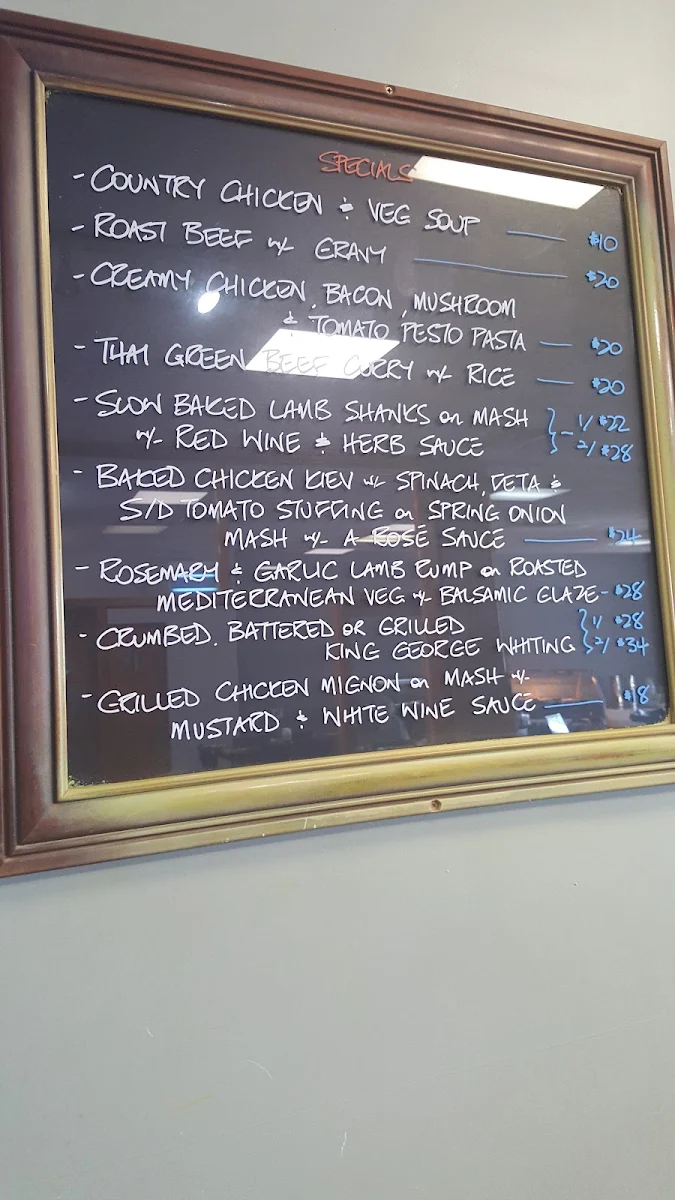 SPECIALS
- COUNTRY CHICKEN & VEG SOUP — $10
- ROAST BEEF w/ GRAVY — $20
- CREAMY CHICKEN, BACON, MUSHROOM
& TOMATO PESTO PASTA — $20
- THAI GREEN BEEF CURRY w/ RICE — $20
- SLOW BAKED LAMB SHANKS on MASH } - 1/ $22
w/- RED WINE & HERB SAUCE } 2/ $28
- BAKED CHICKEN KIEV w/- SPINACH, FETA &
S/D TOMATO STUFFING on SPRING ONION
MASH w/- A ROSÉ SAUCE — $24
- ROSEMARY & GARLIC LAMB RUMP on ROASTED
MEDITERRANEAN VEG w/- BALSAMIC GLAZE - $28
- CRUMBED, BATTERED OR GRILLED } 1/ $28
KING GEORGE WHITING } 2/ $34
- GRILLED CHICKEN MIGNON on MASH w/-
MUSTARD & WHITE WINE SAUCE — $18